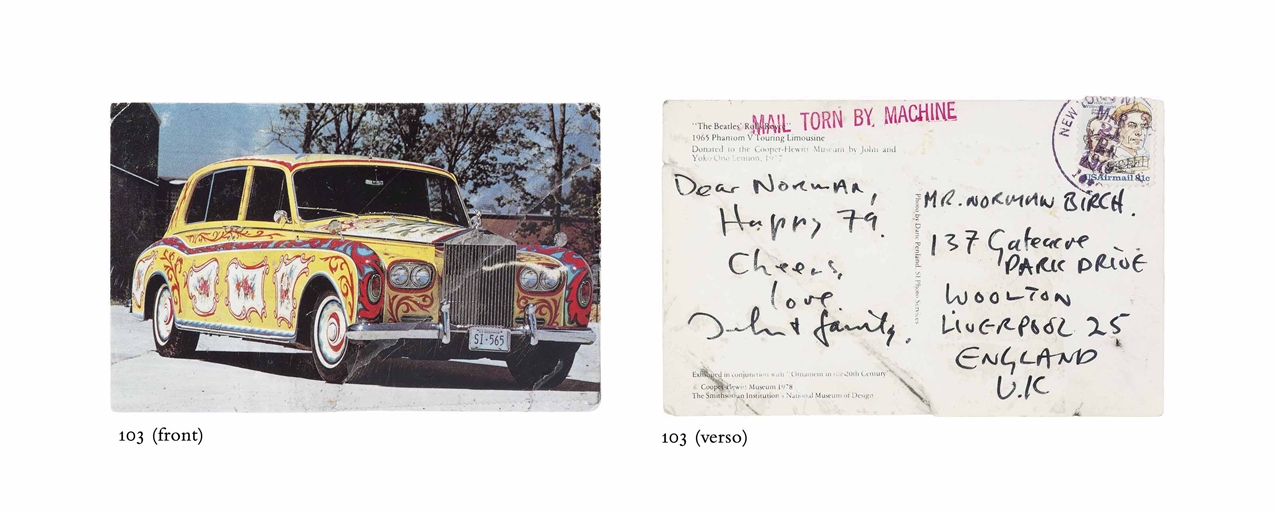 SI-565
103 (front)
MAIL TORN BY MACHINE
"The Beatles' Rolls-Royce"
1965 Phantom V Touring Limousine
Donated to the Cooper-Hewitt Museum by John and
Yoko Ono Lennon, 1977
Dear NORMAN,
Happy 79.
Cheers,
love
John & family.
Exhibited in conjunction with "Ornament in the 20th Century"
© Cooper-Hewitt Museum 1978
The Smithsonian Institution's National Museum of Design
Photo by Dane Penland, SI Photo Services
NEW YORK NY
USAirmail 31c
MR. NORMAN BIRCH.
137 Gateacre
PARK DRIVE
WOOLTON
LIVERPOOL 25,
ENGLAND
U.K
103 (verso)